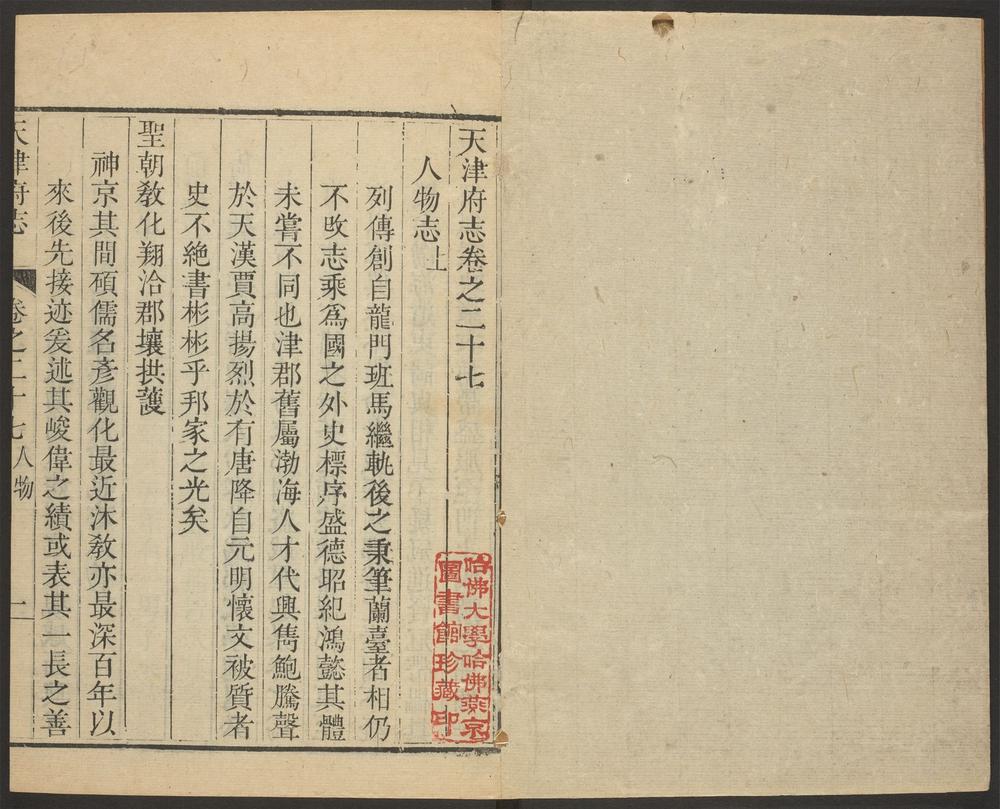 天津府志卷之二十七
人物志上
列傳創自龍門班馬繼軌後之秉筆蘭臺者相仍
不改志乘爲國之外史標序盛德昭紀鴻懿其體
未嘗不同也津郡舊屬渤海人才代興雋鮑騰聲
於天漢賈高揚烈於有唐降自元明懷文被質者
史不絶書彬彬乎邦家之光矣
聖朝敎化翔洽郡壤拱護
神京其間碩儒名彥觀化最近沐敎亦最深百年以
來後先接迹爰述其峻偉之績或表其一長之善
天津府志 卷之二十七人物 一
哈佛大學哈佛燕京
圖書館珍藏印